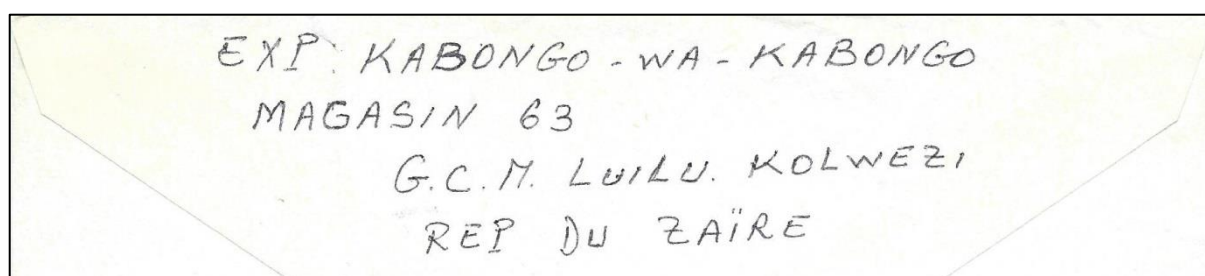 EXP. KABONGO - WA - KABONGO
MAGASIN 63
G.C.M. LUILU. KOLWEZI
REP DU ZAÏRE